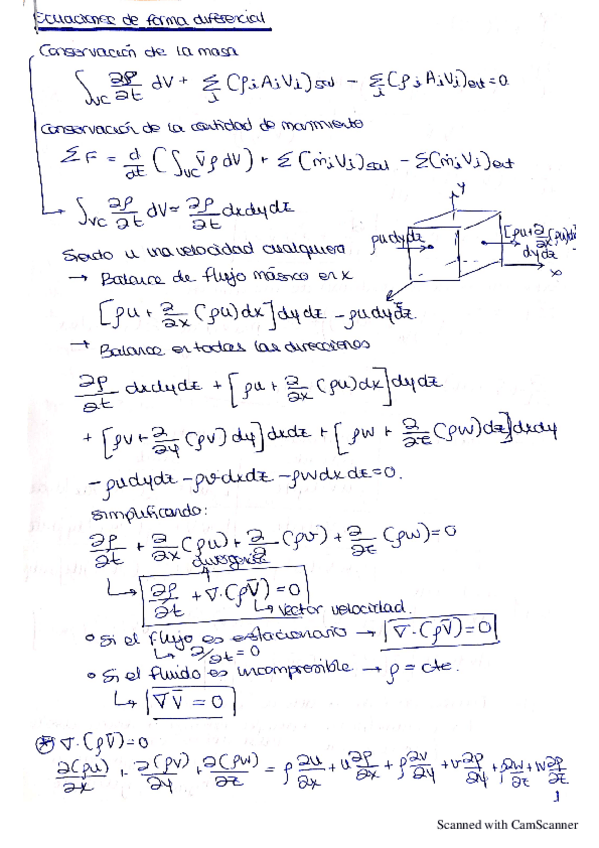 Ecuaciones de forma diferencial
Conservación de la masa
∫vc ∂ρ/∂t dV + Σj (ρi Ai Vi)sal − Σj (ρi Ai Vi)ent = 0
Conservación de la cantidad de movimiento
ΣF = d/dt (∫vc V̄ρ dV) + Σ(ṁi Vi)sal − Σ(ṁi Vi)ent
→ ∫vc ∂ρ/∂t dV ≈ ∂ρ/∂t dxdydz
y
ρudydz
[ρu + ∂/∂x (ρu)dx]
dydz
x
z
Siendo u una velocidad cualquiera
→ Balance de flujo másico en x
[ρu + ∂/∂x (ρu)dx]dydz − ρudydz.
→ Balance en todas las direcciones
∂ρ/∂t dxdydz + [ρu + ∂/∂x (ρu)dx]dydz
+ [ρv + ∂/∂y (ρv)dy]dxdz + [ρw + ∂/∂z (ρw)dz]dxdy
− ρudydz − ρvdxdz − ρwdxdz = 0.
simplificando:
∂ρ/∂t + ∂/∂x (ρu) + ∂/∂ (ρv) + ∂/∂z (ρw) = 0
divergencia
↳ ∂ρ/∂t + ∇·(ρV̄) = 0
↳ vector velocidad.
• Si el flujo es estacionario → ∇·(ρV̄) = 0
↳ ∂/∂t = 0
• Si el fluido es incompresible → ρ = cte.
↳ ∇V̄ = 0
⊛ ∇·(ρV̄) = 0
∂(ρu)/∂x + ∂(ρv)/∂y + ∂(ρw)/∂z = ρ ∂u/∂x + u ∂ρ/∂x + ρ ∂v/∂y + v ∂ρ/∂y + ρ ∂w/∂z + w ∂ρ/∂z
1
Scanned with CamScanner